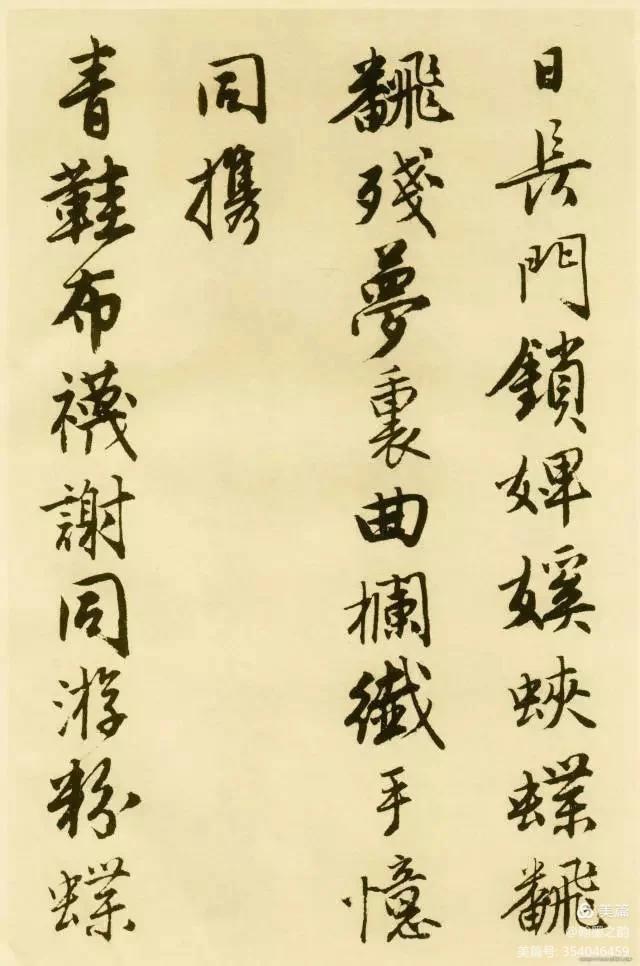 日長門鎖婢㜎蛺蝶飜
飜殘夢裏曲欄纖手憶
同携
青鞋布襪謝同游粉蝶
美篇
@翰墨之韵
美篇号: 354046459